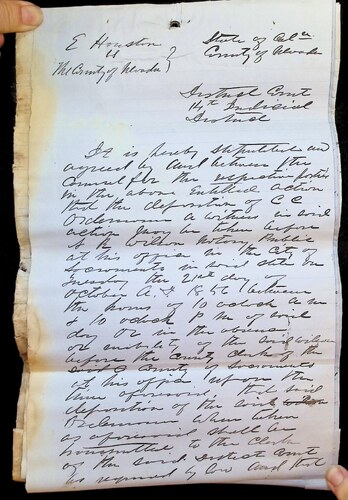 E Houston
vs
The County of Nevada
State of Cal
County of Nevada
District Court
14th Judicial
District
It is hereby stipulated and
agreed by and between the
Counsel for the respective parties
in the above Entitled action
that the deposition of C C
a witness in said
action may be taken before
Wilson Notary Public
at his office in the City of
Sacramento in said State on
Tuesday the 21st day of
October A.D. 1856 between
the hours of 10 oclock a m
& 10 oclock P M of said
day or in the absence
or inability of the said Wilson
before the County Clerk of the
said County of Sacramento
at his office upon the
time aforesaid that said
deposition of the said
when taken
as aforesaid shall be
transmitted to the Clerk
of the said District Court
as required by law and that